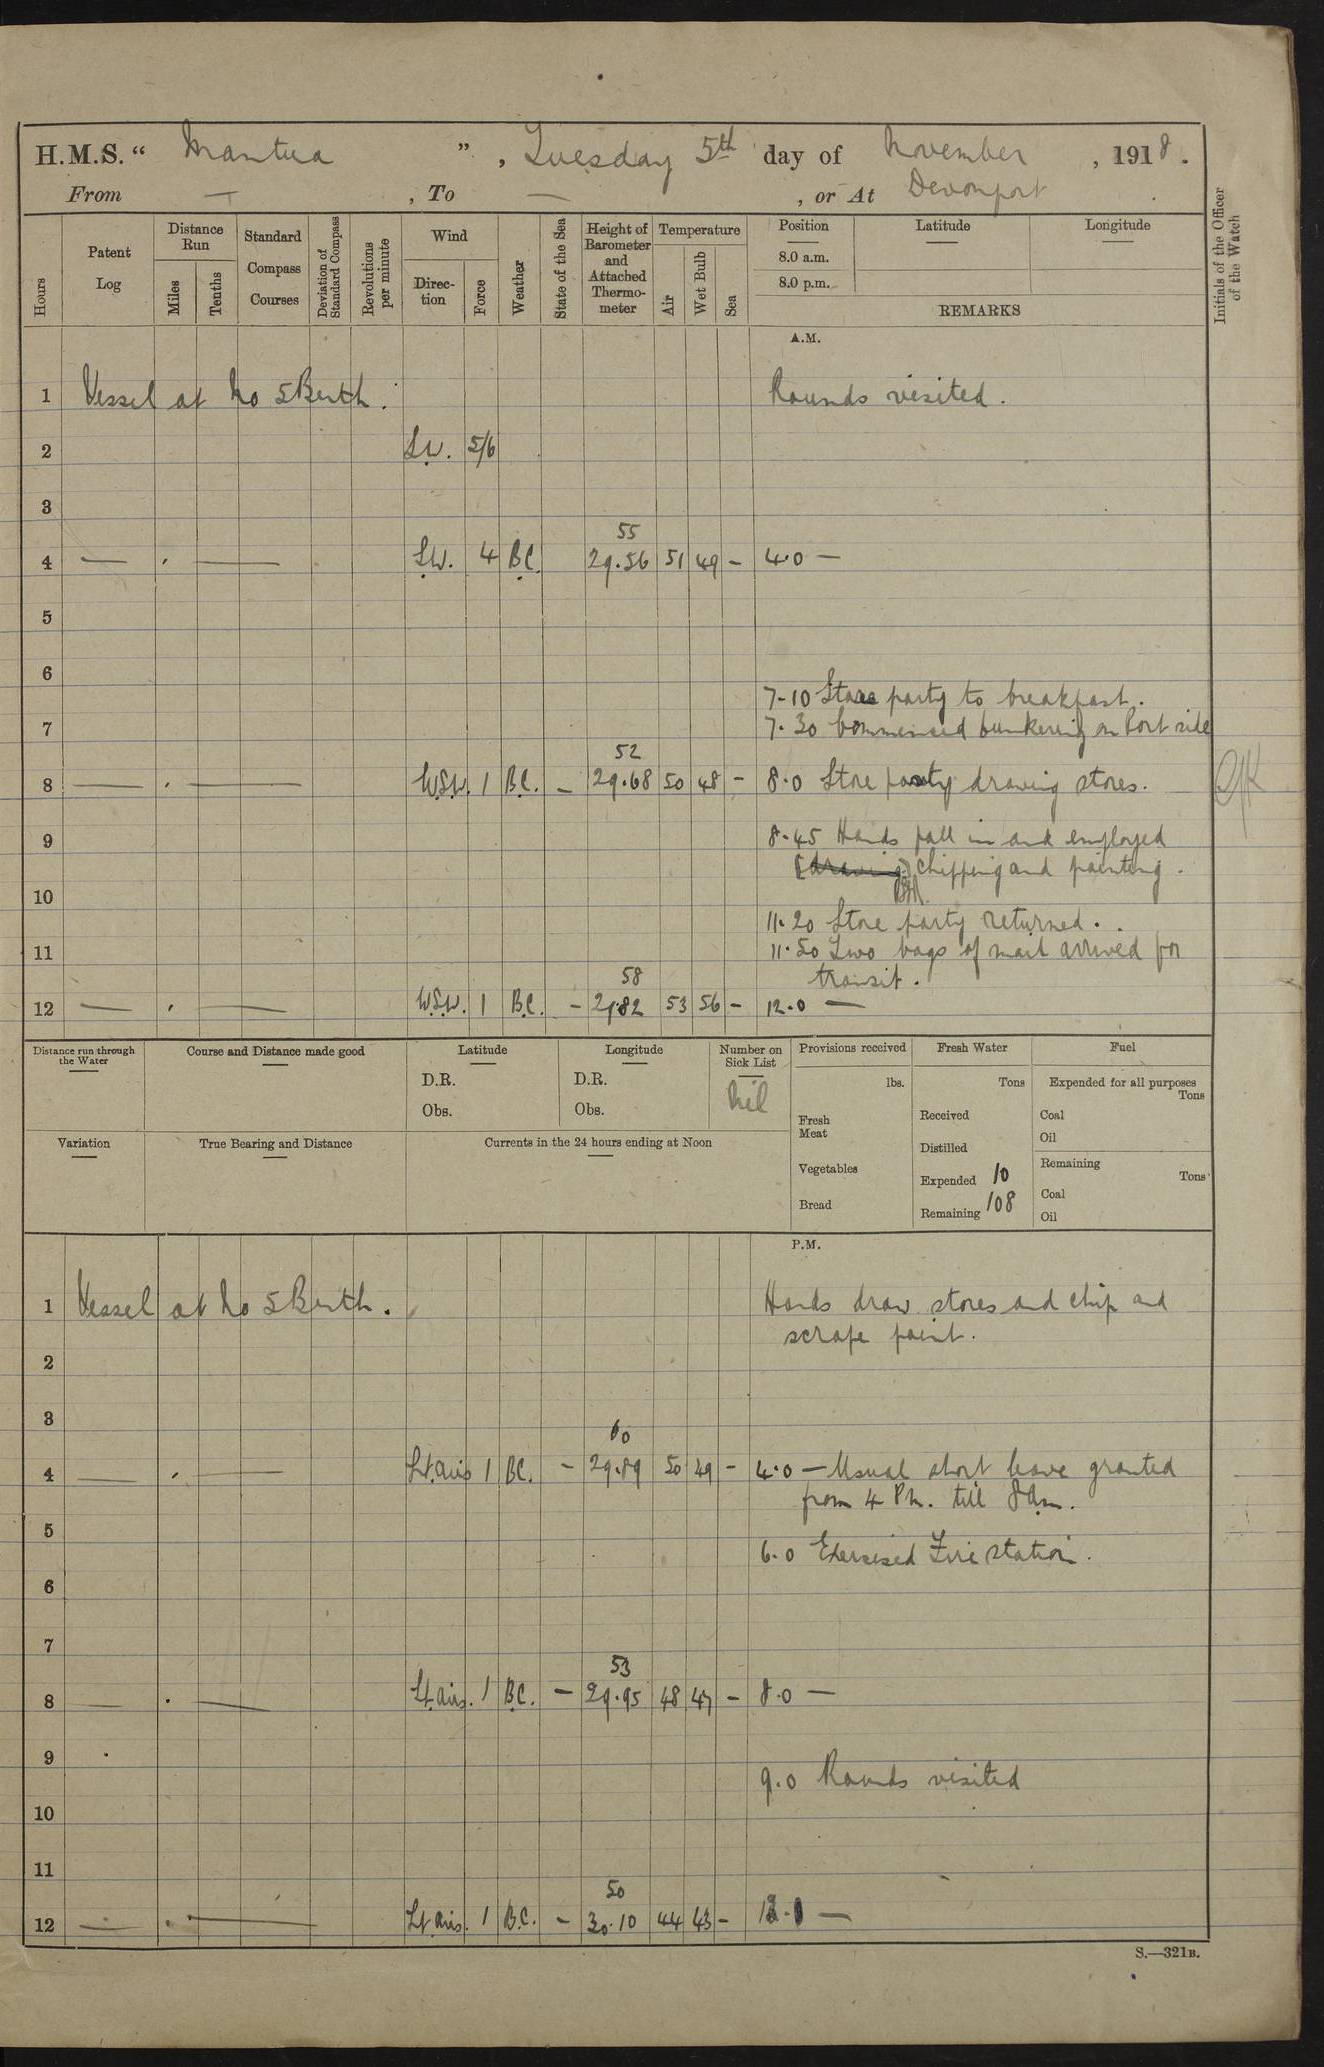 H.M.S. “ Mantua ” , Tuesday 5th day of November , 1918 .
From — , To — , or At Devonport
Hours
Patent Log
Distance Run
Miles
Tenths
Standard Compass Courses
Deviation of Standard Compass
Revolutions per minute
Wind
Direction
Force
Weather
State of the Sea
Height of Barometer and Attached Thermometer
Temperature
Air
Wet Bulb
Sea
Position
8.0 a.m.
8.0 p.m.
Latitude
Longitude
REMARKS
Initials of the Officer of the Watch
A.M.
1 Vessel at No 5 Berth. Rounds visited.
2 S.W. 5/6
3
55
4 — . — S.W. 4 B.C. 29.56 51 49 – 4.0 —
5
6
7-10 Store party to breakfast.
7 7.30 Commenced bunkering on Port side
52
8 — . — W.S.W. 1 B.C. – 29.68 50 48 – 8.0 Store party drawing stores.
9 8.45 Hands fall in and employed
(drawing) chipping and painting.
10
11.20 Store party returned.
11 11.50 Two bags of mail arrived for
58 transit.
12 — . — W.S.W. 1 B.C. – 29.82 53 56 – 12.0 —
Distance run through the Water
Course and Distance made good
Latitude
D.R.
Obs.
Longitude
D.R.
Obs.
Number on Sick List
Nil
Provisions received
lbs.
Fresh Meat
Vegetables
Bread
Fresh Water
Tons
Received
Distilled
Expended 10
Remaining 108
Fuel
Expended for all purposes
Tons
Coal
Oil
Remaining
Tons
Coal
Oil
Variation
True Bearing and Distance
Currents in the 24 hours ending at Noon
P.M.
1 Vessel at No 5 Berth. Hands draw stores and chip and
scrape paint.
2
3
60
4 — . — Lt. airs 1 B.C. – 29.89 50 49 – 4.0 — Usual short leave granted
from 4 Pm. till 8 Am.
5
6.0 Exercised Fire station.
6
7
53
8 — . — Lt airs. 1 B.C. – 29.95 48 47 – 8.0 —
9
9.0 Rounds visited
10
11
50
12 — . — Lt airs. 1 B.C. – 30.10 44 43 – 12.0 —
S.—321B.